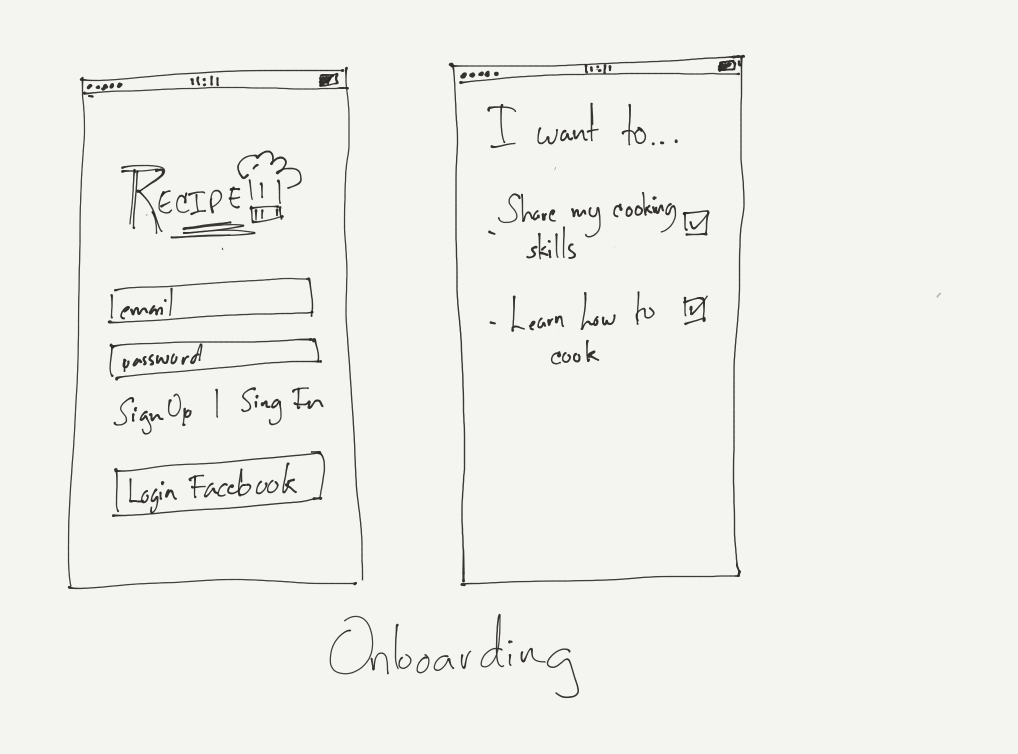 11:11
RECIPE
email
password
Sign Up | Sing In
Login Facebook
11:11
I want to...
- Share my cooking
skills
- Learn how to
cook
Onboarding